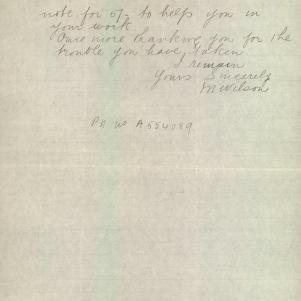 note for 5/- to help you in
your work
Once more thanking you for the
trouble you have taken
I remain
Yours Sincerely
M Wilson
PN No A 554089